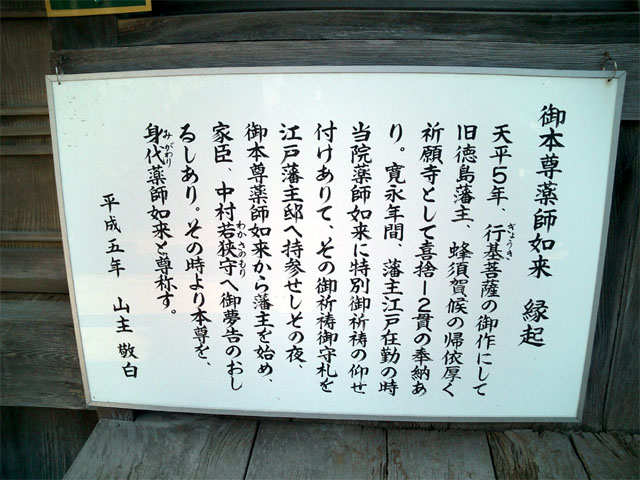 御本尊薬師如来 縁起
天平5年、行基菩薩の御作にして
旧徳島藩主、蜂須賀候の帰依厚く
祈願寺として喜捨12貫の奉納あ
り。寛永年間、藩主江戸在勤の時
当院薬師如来に特別御祈祷の仰せ
付けありて、その御祈祷御守札を
江戸藩主邸へ持参せしその夜、
御本尊薬師如来から藩主を始め、
家臣、中村若狭守へ御夢告のおし
るしあり。その時より本尊を、
身代薬師如来と尊称す。
平成五年 山主 敬白
ぎょうき
わかさのもり
みがわり